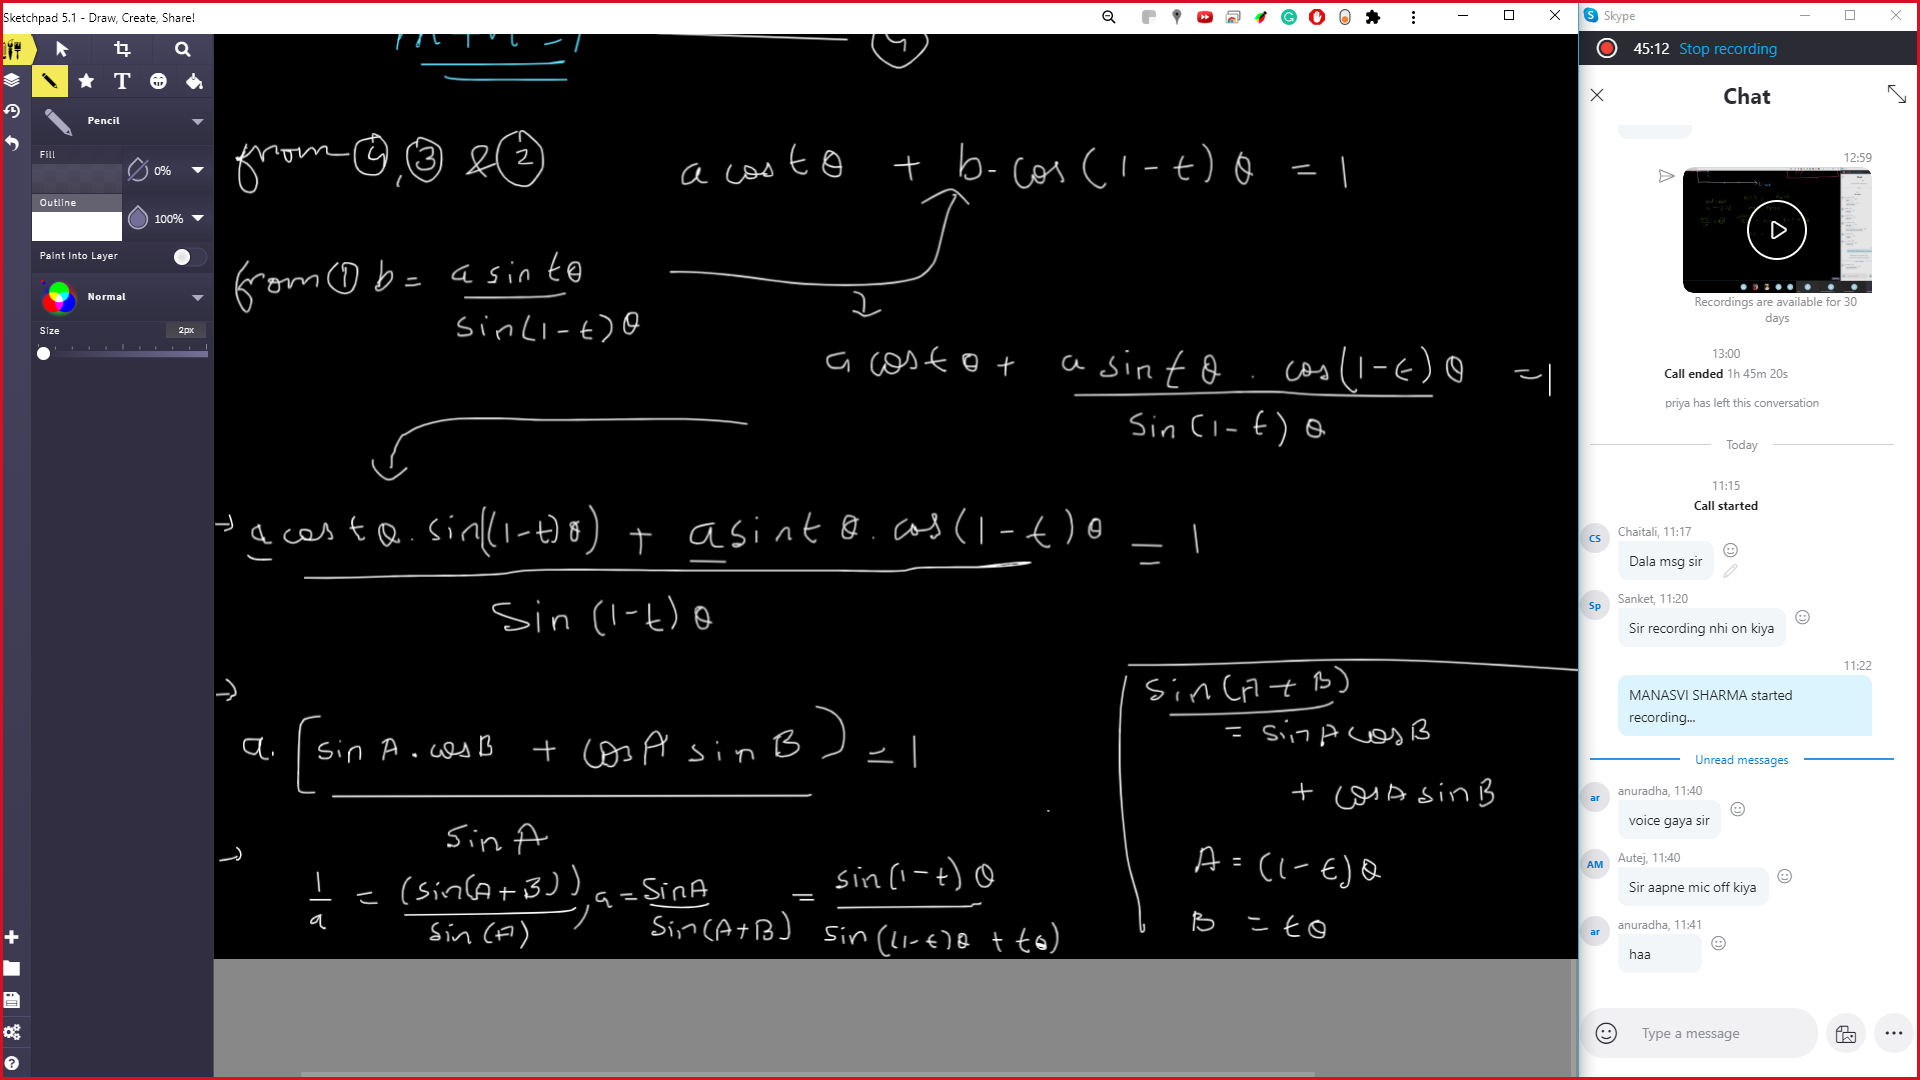 Sketchpad 5.1 - Draw, Create, Share!
Pencil
Fill
0%
Outline
100%
Paint Into Layer
Normal
Size
2px
m + n = 1
④
from ④, ③ & ② a cos tθ + b. cos(1-t)θ = 1
from ① b = a sin tθ / sin(1-t)θ
a cos tθ + a sin tθ . cos(1-t)θ / sin(1-t)θ = 1
→ a cos tθ. sin((1-t)θ) + a sin tθ. cos(1-t)θ / sin(1-t)θ = 1
→
a. [sin A. cos B + cos A sin B) / sin A = 1
→
1/a = (sin(A+B)) / sin(A), a = sin A / sin(A+B) = sin(1-t)θ / sin((1-t)θ + tθ)
sin(A + B)
= sin A cos B
+ cos A sin B
A = (1-t)θ
B = tθ
Skype
45:12 Stop recording
Chat
12:59
Recordings are available for 30
days
13:00
Call ended 1h 45m 20s
priya has left this conversation
Today
11:15
Call started
CS
Chaitali, 11:17
Dala msg sir
Sp
Sanket, 11:20
Sir recording nhi on kiya
11:22
MANASVI SHARMA started
recording...
Unread messages
ar
anuradha, 11:40
voice gaya sir
AM
Autej, 11:40
Sir aapne mic off kiya
ar
anuradha, 11:41
haa
Type a message